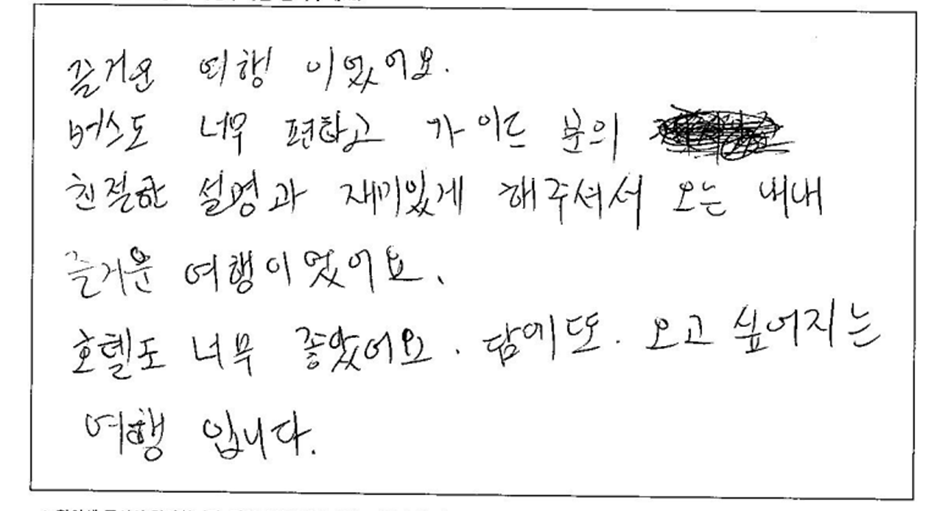 즐거운 여행 이었어요.
버스도 너무 편하고 가이드 분의
친절한 설명과 재미있게 해주셔서 오는 내내
즐거운 여행이었어요.
호텔도 너무 좋았어요. 담에또. 오고 싶어지는
여행 입니다.